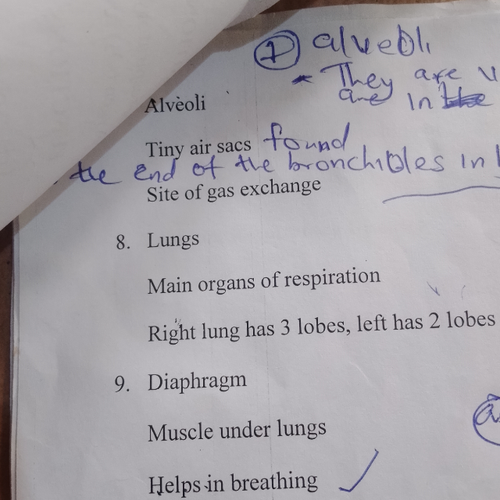 7 alveoli
* They are v
are in the
Alveoli
Tiny air sacs found
the end of the bronchioles in
Site of gas exchange
8. Lungs
Main organs of respiration
Right lung has 3 lobes, left has 2 lobes
9. Diaphragm
Muscle under lungs
Helps in breathing